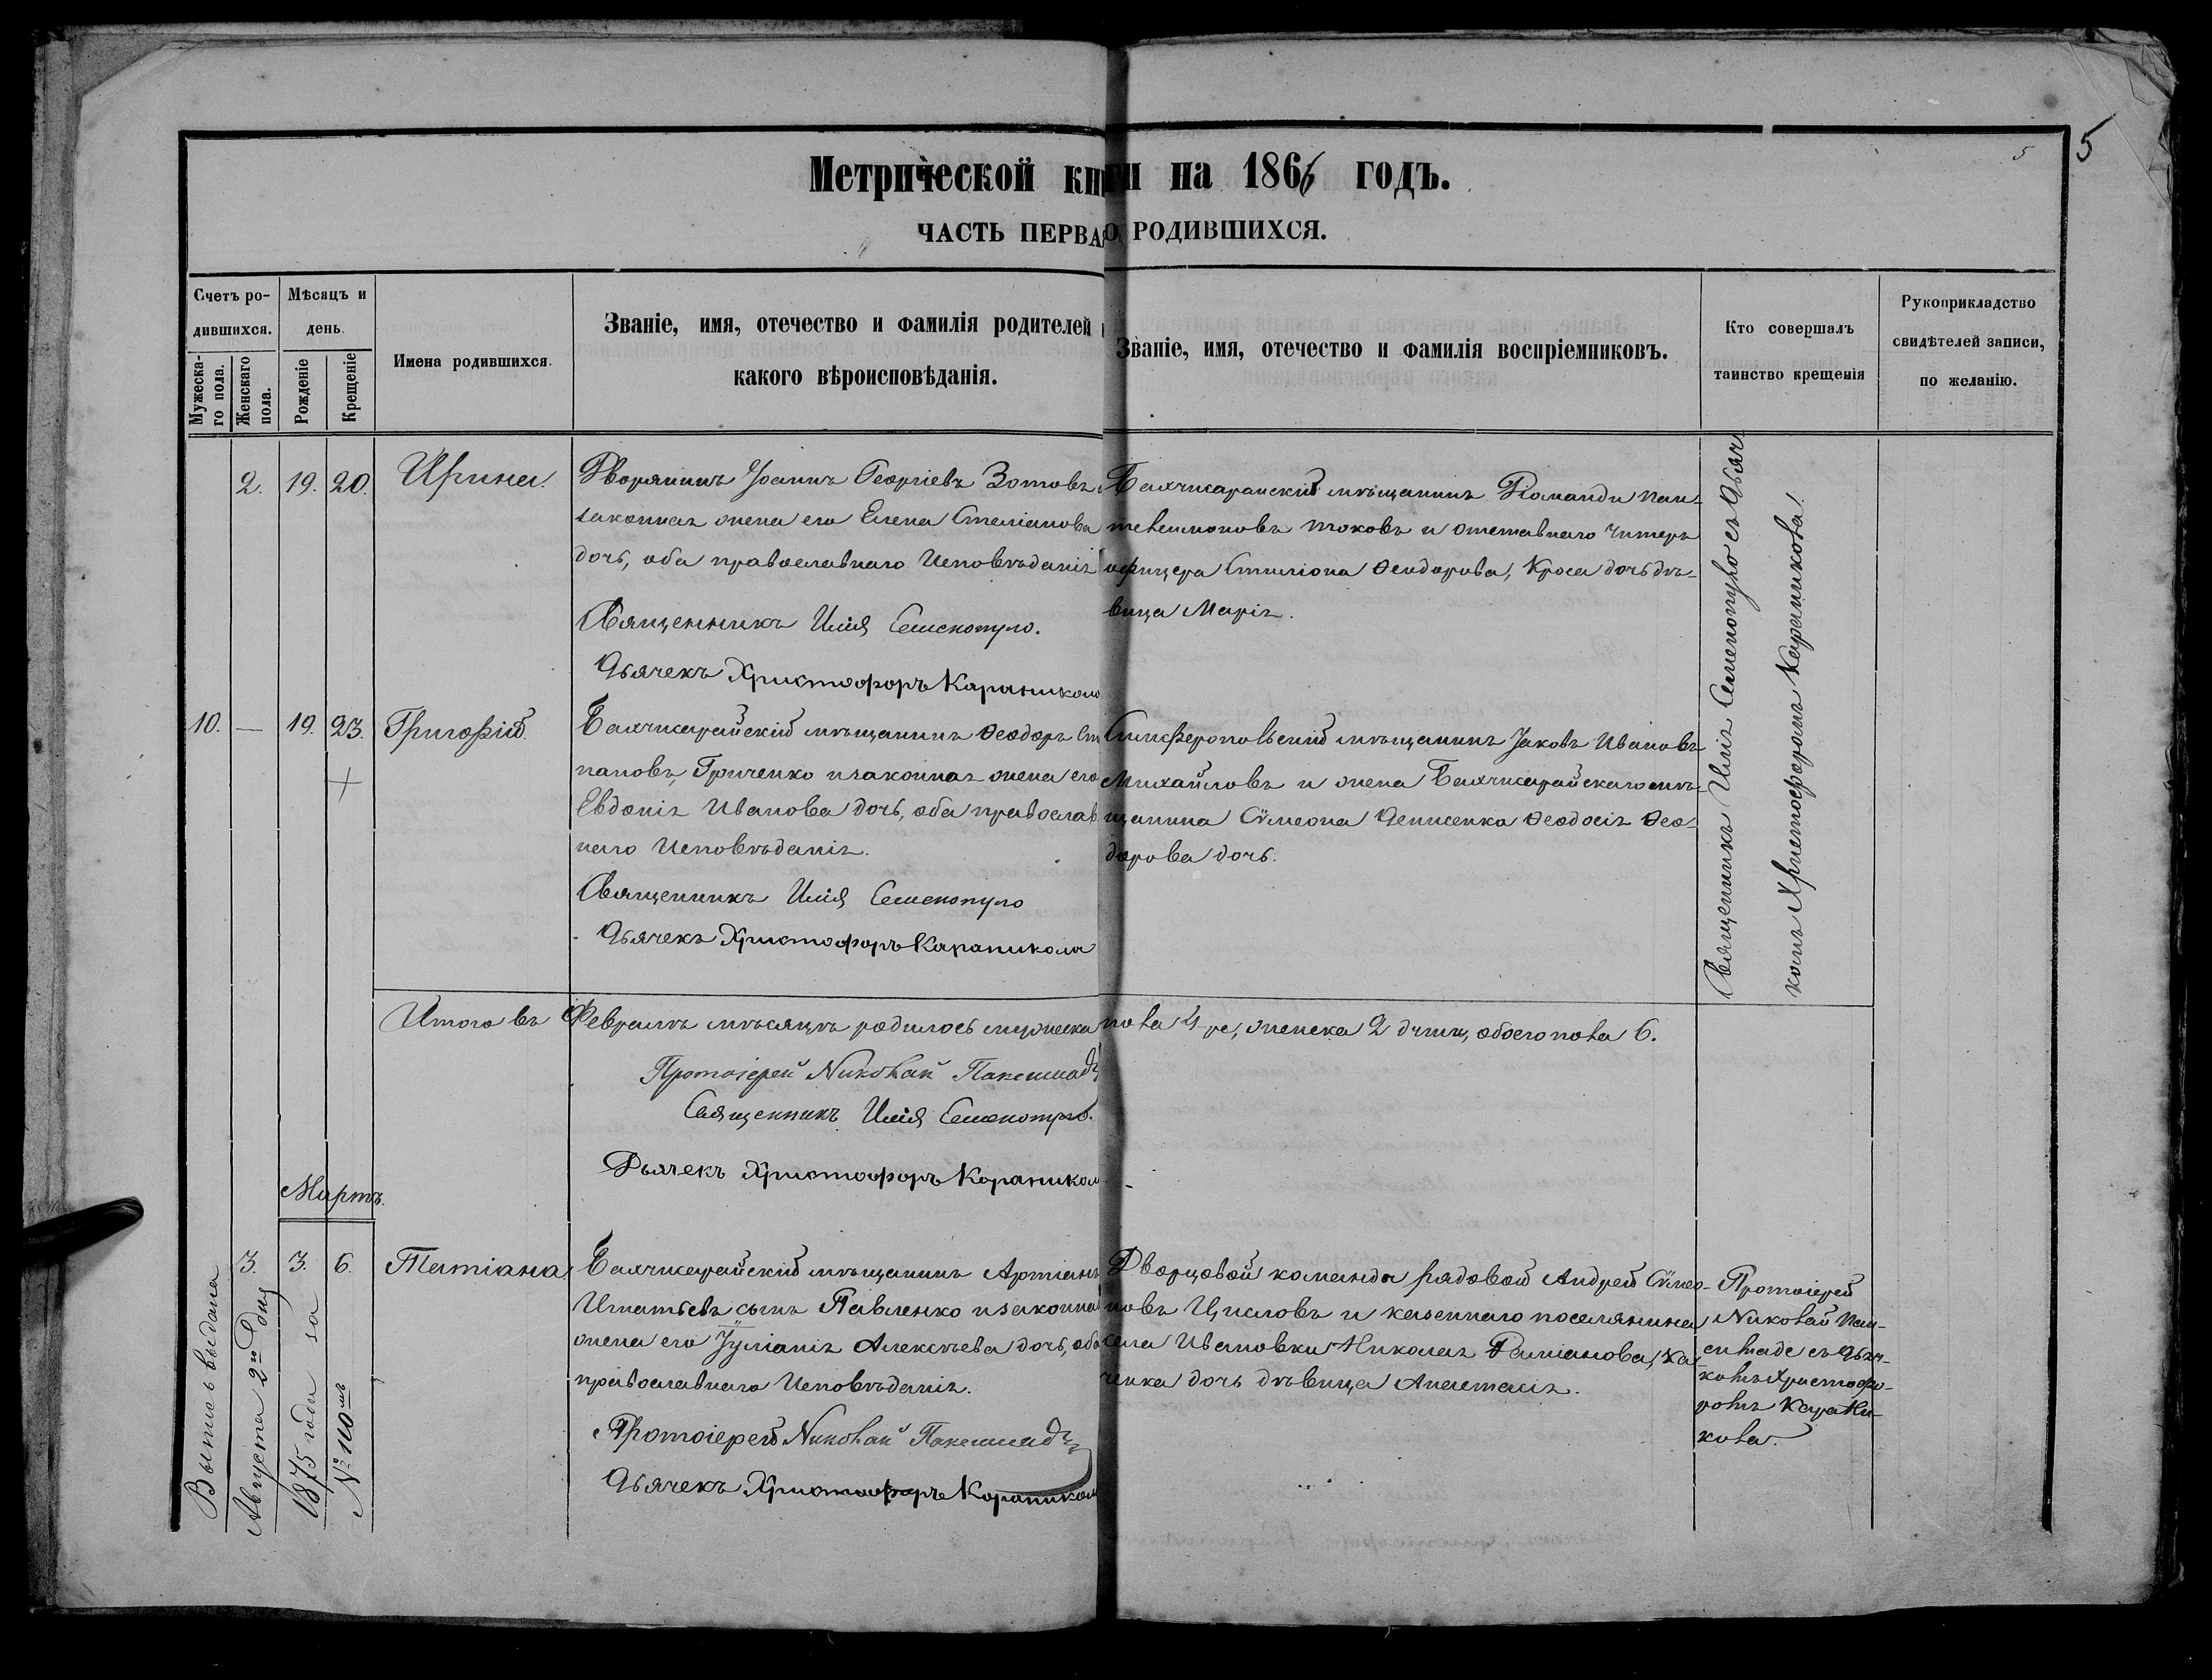 5
5
Метрической книги на 1866 годъ.
ЧАСТЬ ПЕРВАЯ О РОДИВШИХСЯ.
Счетъ ро-
дившихся.
Мужеска-
го пола.
Женскаго
пола.
Мѣсяцъ и
день.
Рожденіе
Крещеніе
Имена родившихся.
Званіе, имя, отечество и фамилія родителей
какого вѣроисповѣданія.
Званіе, имя, отечество и фамилія воспріемниковъ.
Кто совершалъ
таинство крещенія
Рукоприкладство
свидѣтелей записи,
по желанію.
2. 19. 20. Ирина.
Дворянинъ Іоаннъ Георгіевъ Зотовъ и
законная жена его Елена Стеліанова
дочь, оба православнаго Исповѣданія
Священникъ Илія
Дьячекъ Христофоръ Караникола
Бахчисарайскій мѣщанинъ Пан-
и отставнаго Унтеръ
офицера Феодорова, дочь дѣ-
вица Марія.
Священникъ Илія съ Дьяч-
комъ Христофоромъ Караникола.
10. — 19. 23. Григорій.
Бахчисарайскій мѣщанинъ Феодоръ Сте
пановъ Гриченко и законная жена его
Евдокія Иванова дочь, оба православ
наго Исповѣданія.
Священникъ Илія
Дьячекъ Христофоръ Караникола
Симферопольскій мѣщанинъ Іаковъ Ивановъ
Михайловъ и жена Бахчисарайскаго мѣ-
щанина Сѵмеона Денисенка Феодосія Фео-
дорова дочь.
Итого въ Февралѣ мѣсяцѣ родилось мужеска пола 4-ре, женска 2 обоего пола 6.
Протоіерей Николай
Священникъ Илія
Дьячекъ Христофоръ Караникола
Мартъ.
3. 3. 6. Татіана.
Бахчисарайскій мѣщанинъ
Игнатьевъ сынъ Павленко и законная
жена его Іуліанія Алексѣева дочь, оба
православнаго Исповѣданія.
Протоіерей Николай
Дьячекъ Христофоръ Караникола
Дворцовой команды рядовой Андрей Сѵмео-
новъ и казеннаго поселянина
села Ивановки Николая
дочь дѣвица Анастасія.
Протоіерей
Николай
съ Дьяч-
комъ Христофо-
ромъ Карани-
кола.
Выпись выдана
Августа 2го Дня
1875 года за
№ 110мъ